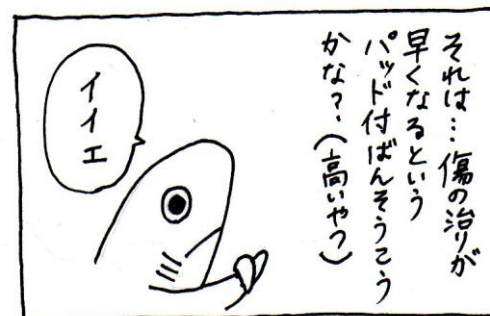 それは…傷の治りが
早くなるという
パッド付ばんそうこう
かな?、(高いやつ)
イイエ